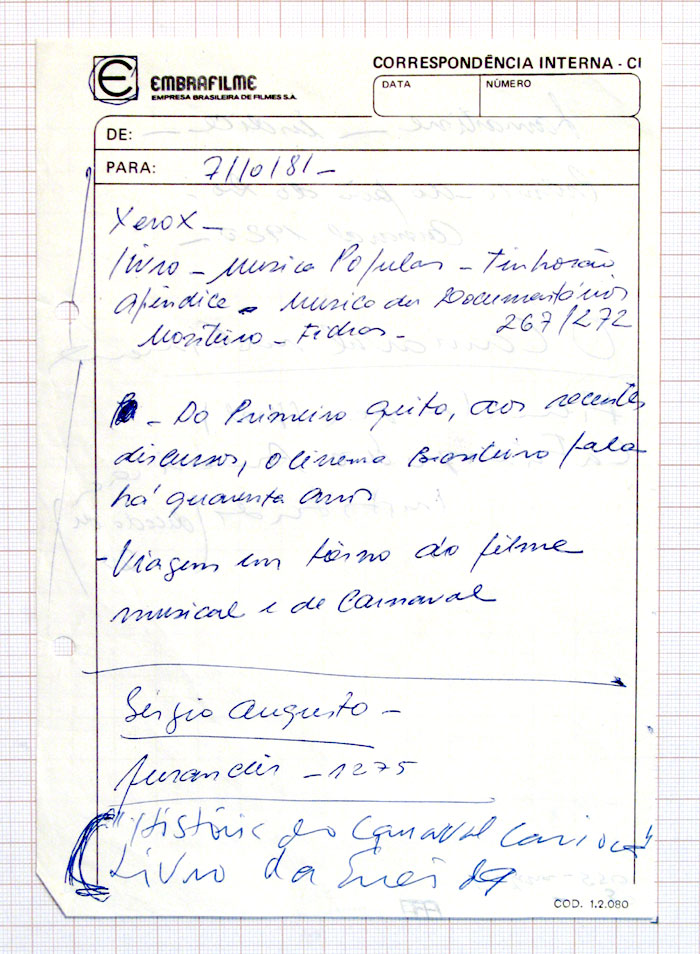 CORRESPONDÊNCIA INTERNA - CI
EMBRAFILME
EMPRESA BRASILEIRA DE FILMES S.A.
DATA
NÚMERO
DE:
PARA: 7/10/81-
Xerox -
livro - Musica Popular - Tinhorão
Apêndice - Musica dos Documentários
- Fichas - 267/272
- Do Primeiro grito, aos recentes
discursos, o cinema Brasileiro fala
há quarenta anos
- Viagem em tôrno do filme
musical e de Carnaval
Sérgio Augusto -
Jurandir - 1275
"História do Carnaval Carioca"
Livro da Eneida
COD. 1.2.080